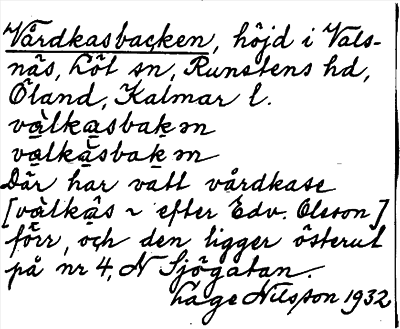 Vårdkasbacken, höjd i Vals-
näs, Löt sn, Runstens hd,
Öland, Kalmar l.
vàlkasbakən
valkásbakən
Där har vatt vårdkase
[vàlkas ~ efter Edv. Olsson]
förr, och den ligger österut
på nr 4, N Sjögatan.
Lage Nilsson 1932